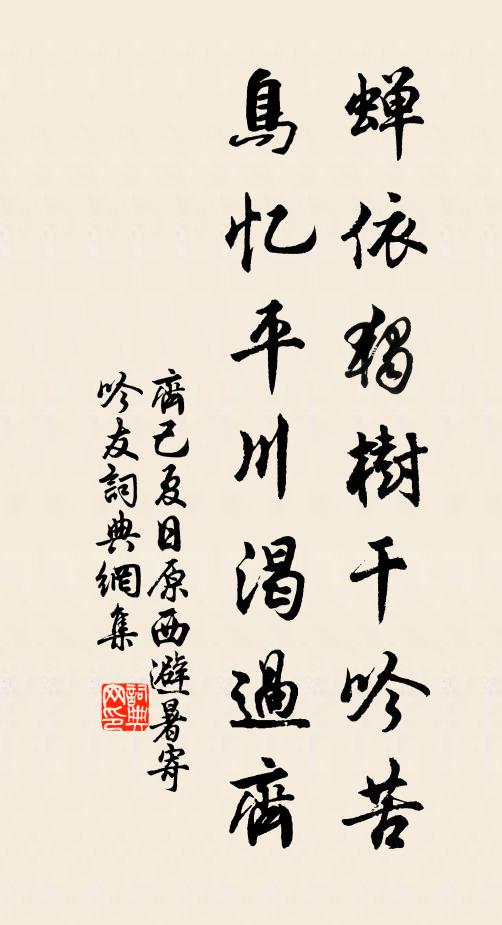 蝉依獨樹干吟苦
鳥忆平川渴過齊
齊己夏日原西避暑寄
吟友詞典網集
詞典网印